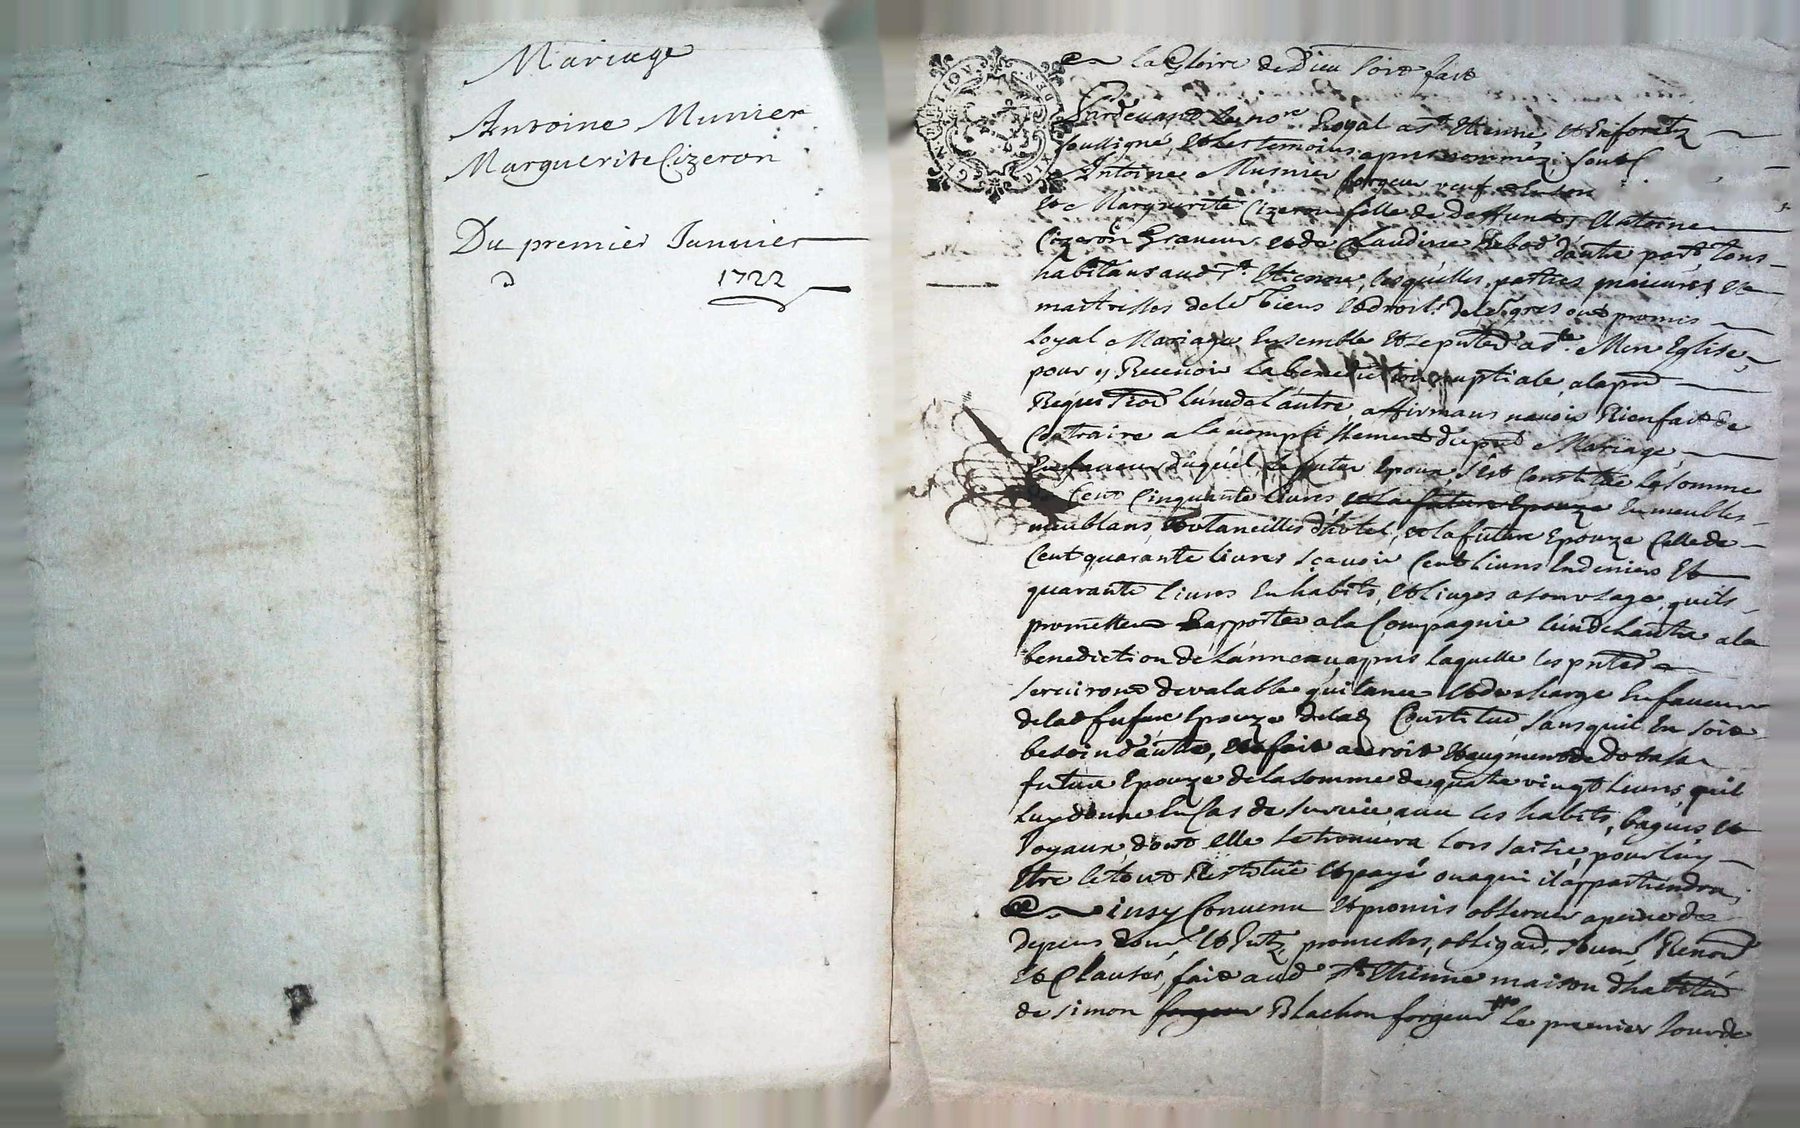 Mariage
Antoine Munier
Marguerite Cizeron
Du premier Januier
1722
A la Gloire de Dieu soit fait
Pardeuant Le no.re Royal a St Etienne, et En foretz
soussigné, et les temoins apres nommez, sont
Antoine Musnier forgeur veuf
et Marguerite Cizeron fille de deffunts Antoine
Cizeron Graueur et de Claudine Rebod d'autre part, tous
habitans aud St. Etienne, lesquelles parties majeures et
maitresses de le.r biens et droits de le.r gres ont promis
loyal Mariage Ensemble et se a Ste Mere Eglise,
pour y Receuoir La benediction nuptiale a la p.re
Requis.on L'un de L'autre affirmans nauoir Rien fait de
Contraire a l'accomplissement du p.nt Mariage
En faueur duquel le futur Epoux s'est Constitué la somme
de Cent Cinquante Liures et La future Epouze En meubles
meublans, et d'hotel, et la future Epouze Celle de
Cent quarante liures sçauoir Cent Liures En deniers Et
quarante Liures En habits, et linges a son usage, quils
promettent Rapporter a la Compagnie l'un de l'autre a la
benediction de L'anneau apres laquelle les p.ntes
seruiront de valable quitance et decharge En faueur
de lad future Epouze de lad Constitu.on sans quil En soit
besoin d'autre, et a fait accroit et augment de dot a sa
future Epouze de la somme de quatre vingt Liures quil
luy donne En Cas de suruie auec les habits, bagues et
Joyaux dont elle se trouuera lors saisie, pour luy
Etre le tout Restitué et payé ou a qui il appartiendra,
Ainsy Conuenu et promis obseruer a peine de
depens dom. et Intz, promesses, obliga.on, soum. Renon.
et Clauses, fait aud St Etienne maison d'habita.on
de Simon forgeur Blachon forgeur Le premier Jour de